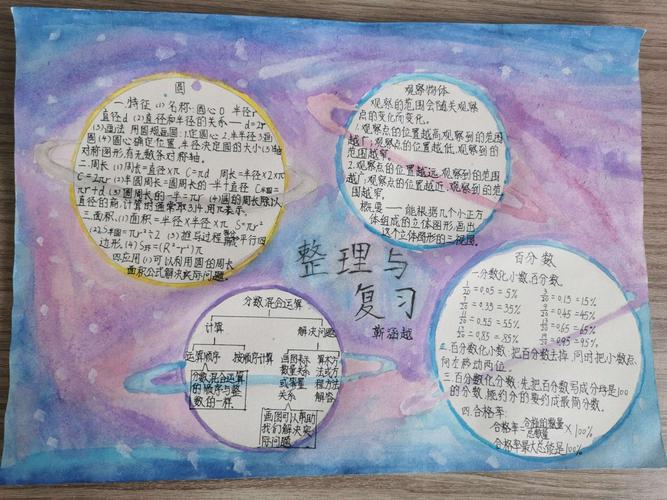 圆
一.特征 (1) 名称:圆心O 半径r
直径d (2)直径和半径的关系——d=2r
(3)画法 用圆规画圆:1.定圆心 2.半径3.画
圆(4)圆心确定位置,半径决定圆的大小(5)轴
对称图形,有无数条对称轴。
二.周长 (1)周长=直径×π C=πd 周长=半径×2×π
C=2πr (2)半圆周长=圆周长的一半+直径
=πr+d (3)圆周长的一半=πr (4)圆的周长除以
直径的商,计算时通常取3.14,用π表示。
三.面积.(1)面积=半径×半径×π S=πr²
=πr²÷2 (3)推导过程 平行四
边形.(4)S环=(R²-r²)π
四.应用 (1)可以利用圆的周长
面积公式解决实际问题。
观察物体
观察的范围会随关观察
点的变化而变化。
1.观察点的位置越高,观察到的范围
越广;观察点的位置越低,观察到的
范围越窄。
2.观察点的位置越远,观察到的范围
越广;观察点的位置越近,观察到的范
围越窄。
搭一搭——能根据几个小正方
体组成的立体图形,画出
这个立体图形的三视图。
整理与
复习
靳涵越
分数混合运算
计算
解决问题
运算顺序
按顺序计算
分数混合运算
的顺序与整
数的一样.
画图表示
数量关系
或等量
关系
算术方
法或方
程方法
解答
画图可以帮助
我们解决实
际问题
百分数
一.分数化小数.百分数。
1/20=0.05=5% 3/20=0.15=15%
7/20=0.35=35% 9/20=0.45=45%
11/20=0.55=55% 13/20=0.65=65%
17/20=0.85=85% 19/20=0.95=95%.
二.百分数化小数:把百分数去掉,同时把小数点
向左移动两位。
三.百分数化分数:先把百分数写成分母是100
的分数,能约分的要约成最简分数。
四.合格率:
合格率=合格的数量/总数量×100%
合格率最大总能是100%